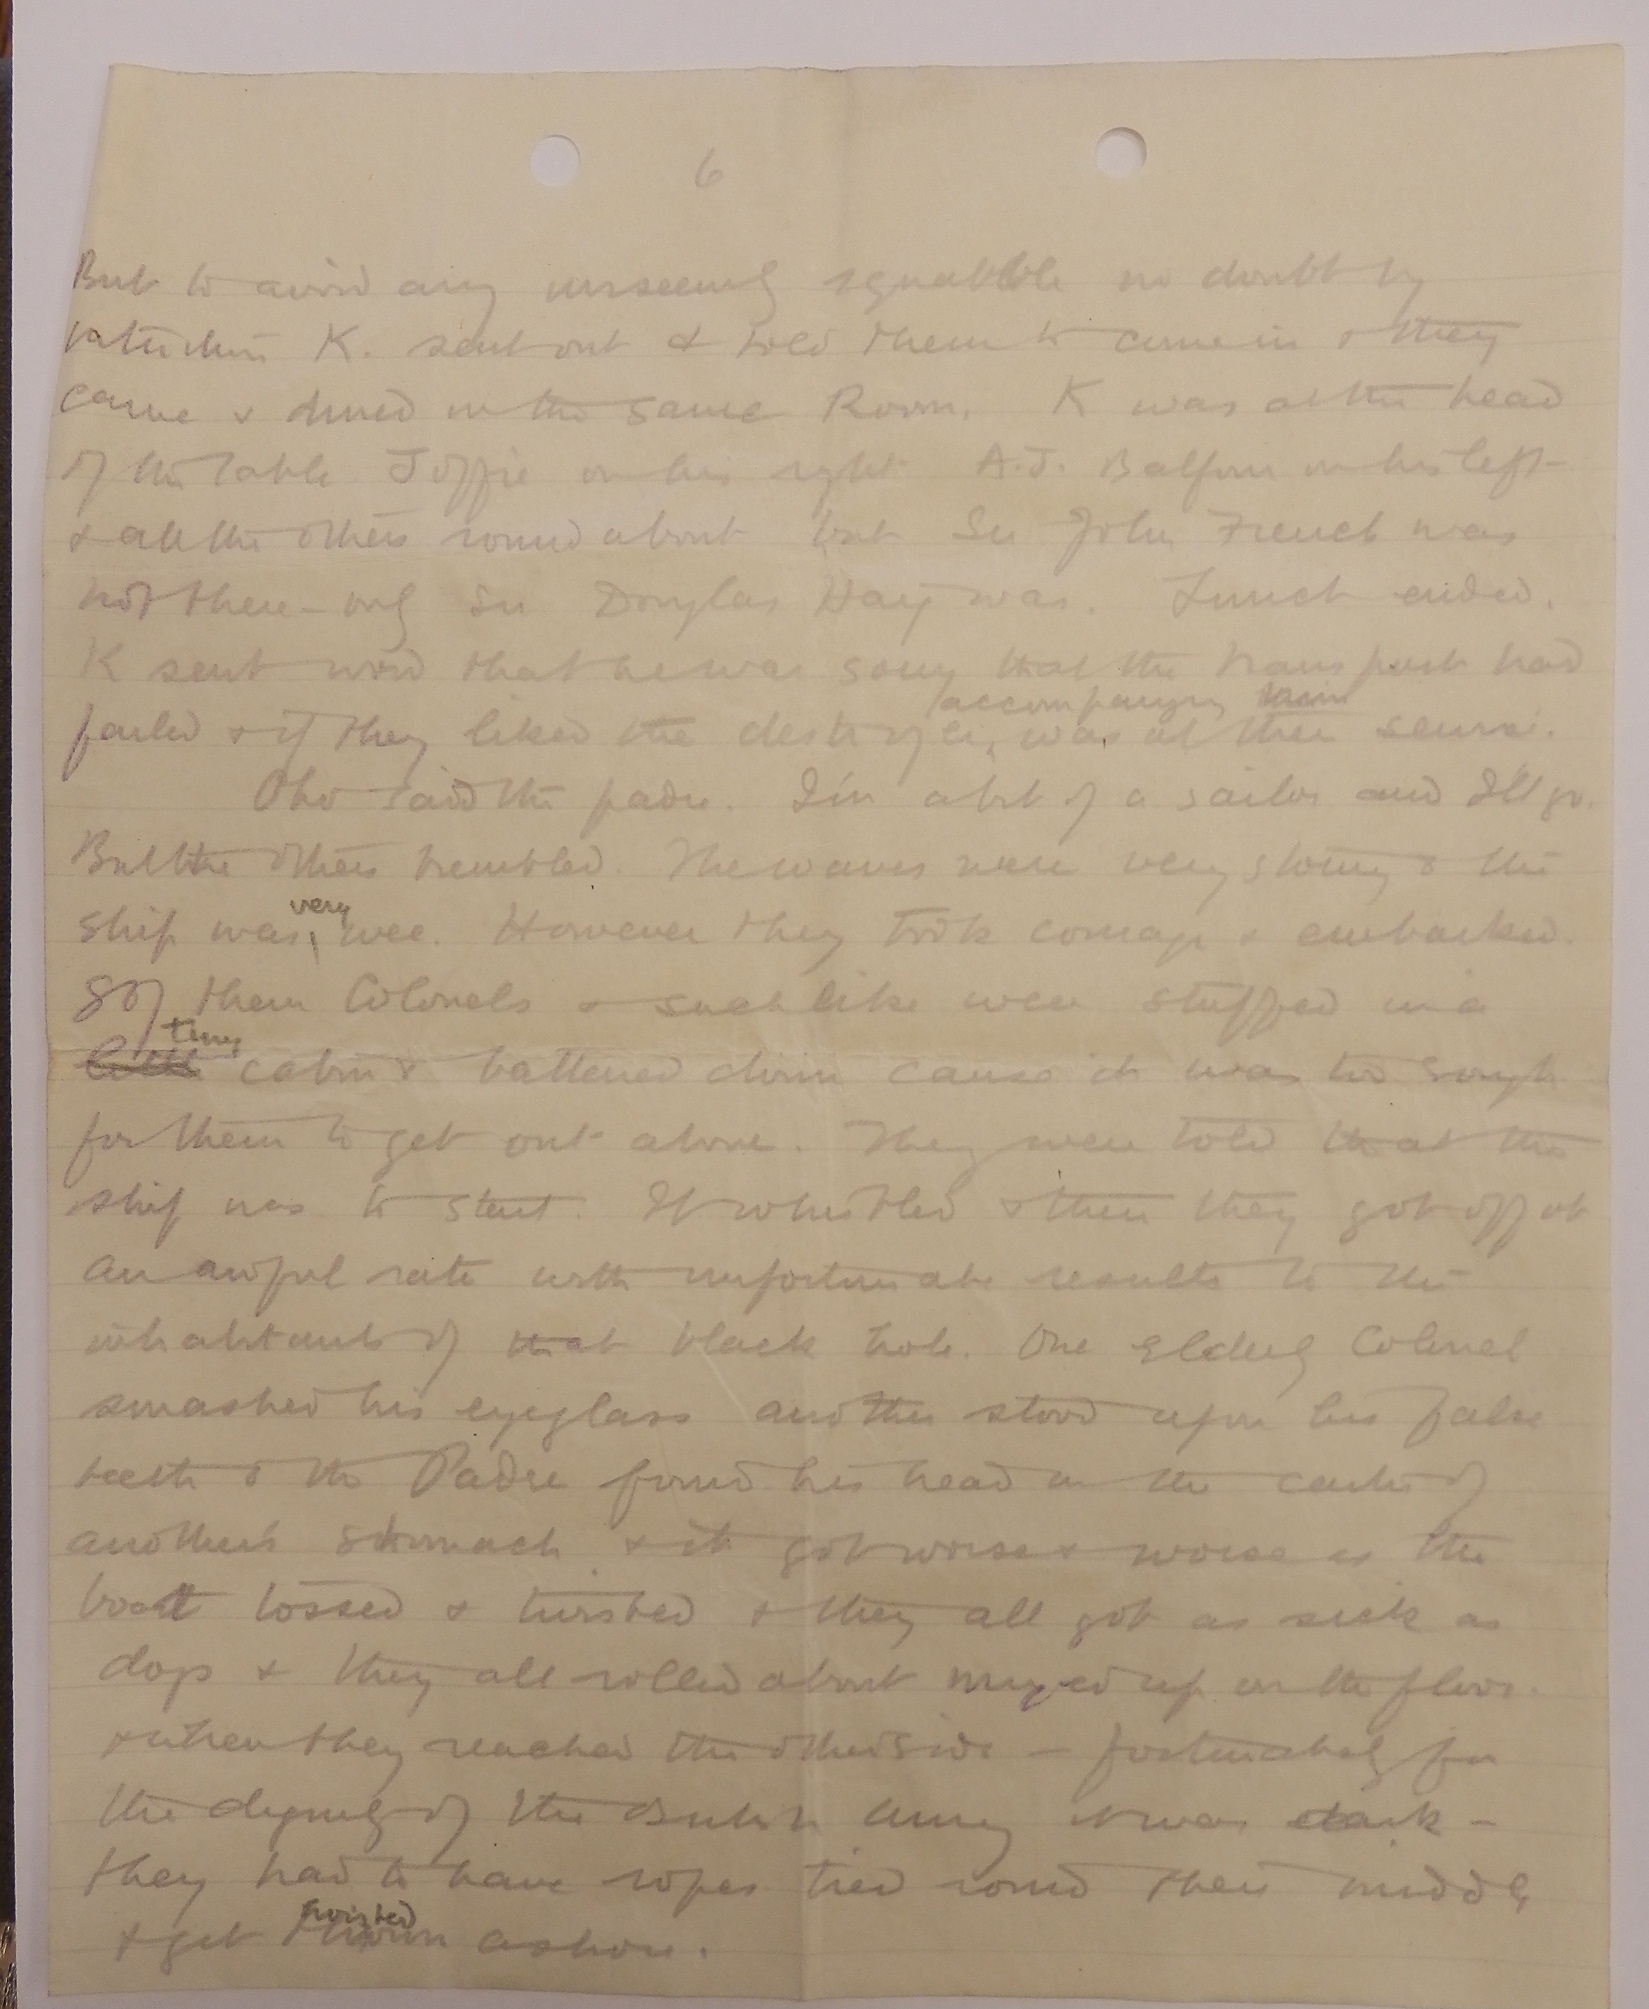 6
But to avoid any unseemly squabble no doubt by
K. sent out & told them to come in & they
came & dined in the same Room. K was at the head
of the table Joffre on his right A.J. Balfour on his left
& all the others round about but Sir John French was
not there - only Sir Douglas Haig was. Lunch ended.
K sent word that he was sorry that the transport had
accompanying
failed & if they liked the destroyer, was at their service.
Oho said the padre. I'm a bit of a sailor and I'll go.
But the others trembled. The waves were very stormy & the
very
ship was wee. However they took courage & embarked.
8 of them Colonels & such like were stuffed in a
tiny
little cabin & battened down cause it was too rough
for them to get out above. They were told that the
ship was to start. It whistled & then they got off at
an awful rate with unfortunate results to the
inhabitants of that black hole. One Elderly Colonel
smashed his eyeglass another stood upon his false
teeth & the Padre found his head in the centre of
another's stomach & it got worse & worse as the
boat tossed & twisted & they all got as sick as
dogs & they all rolled about mixed up on the floor.
& when they reached the other side - fortunately for
the dignity of the British Army it was dark -
they had to have ropes tied round their middle
hoisted
& get thrown ashore.